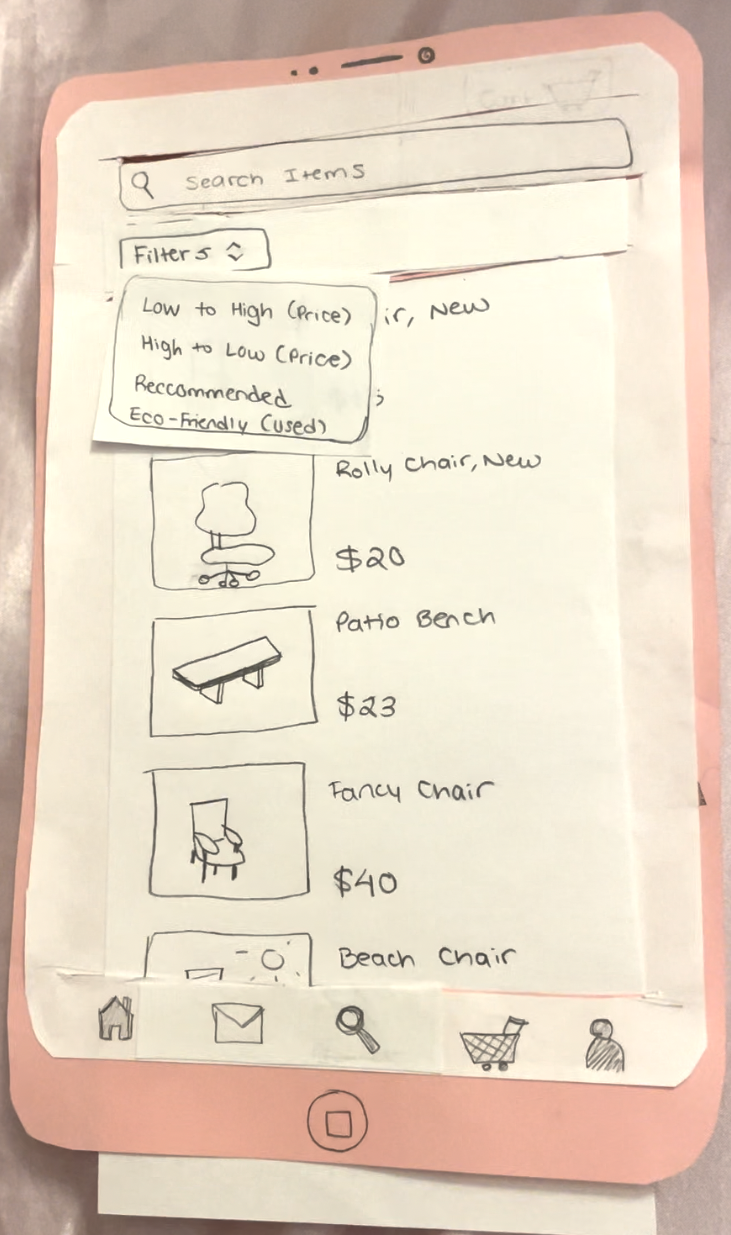 Cart
Search Items
Filters
Low to High (Price)
High to Low (Price)
Reccommended
Eco-Friendly (used)
ir, New
Rolly Chair, New
$20
Patio Bench
$23
Fancy Chair
$40
Beach Chair